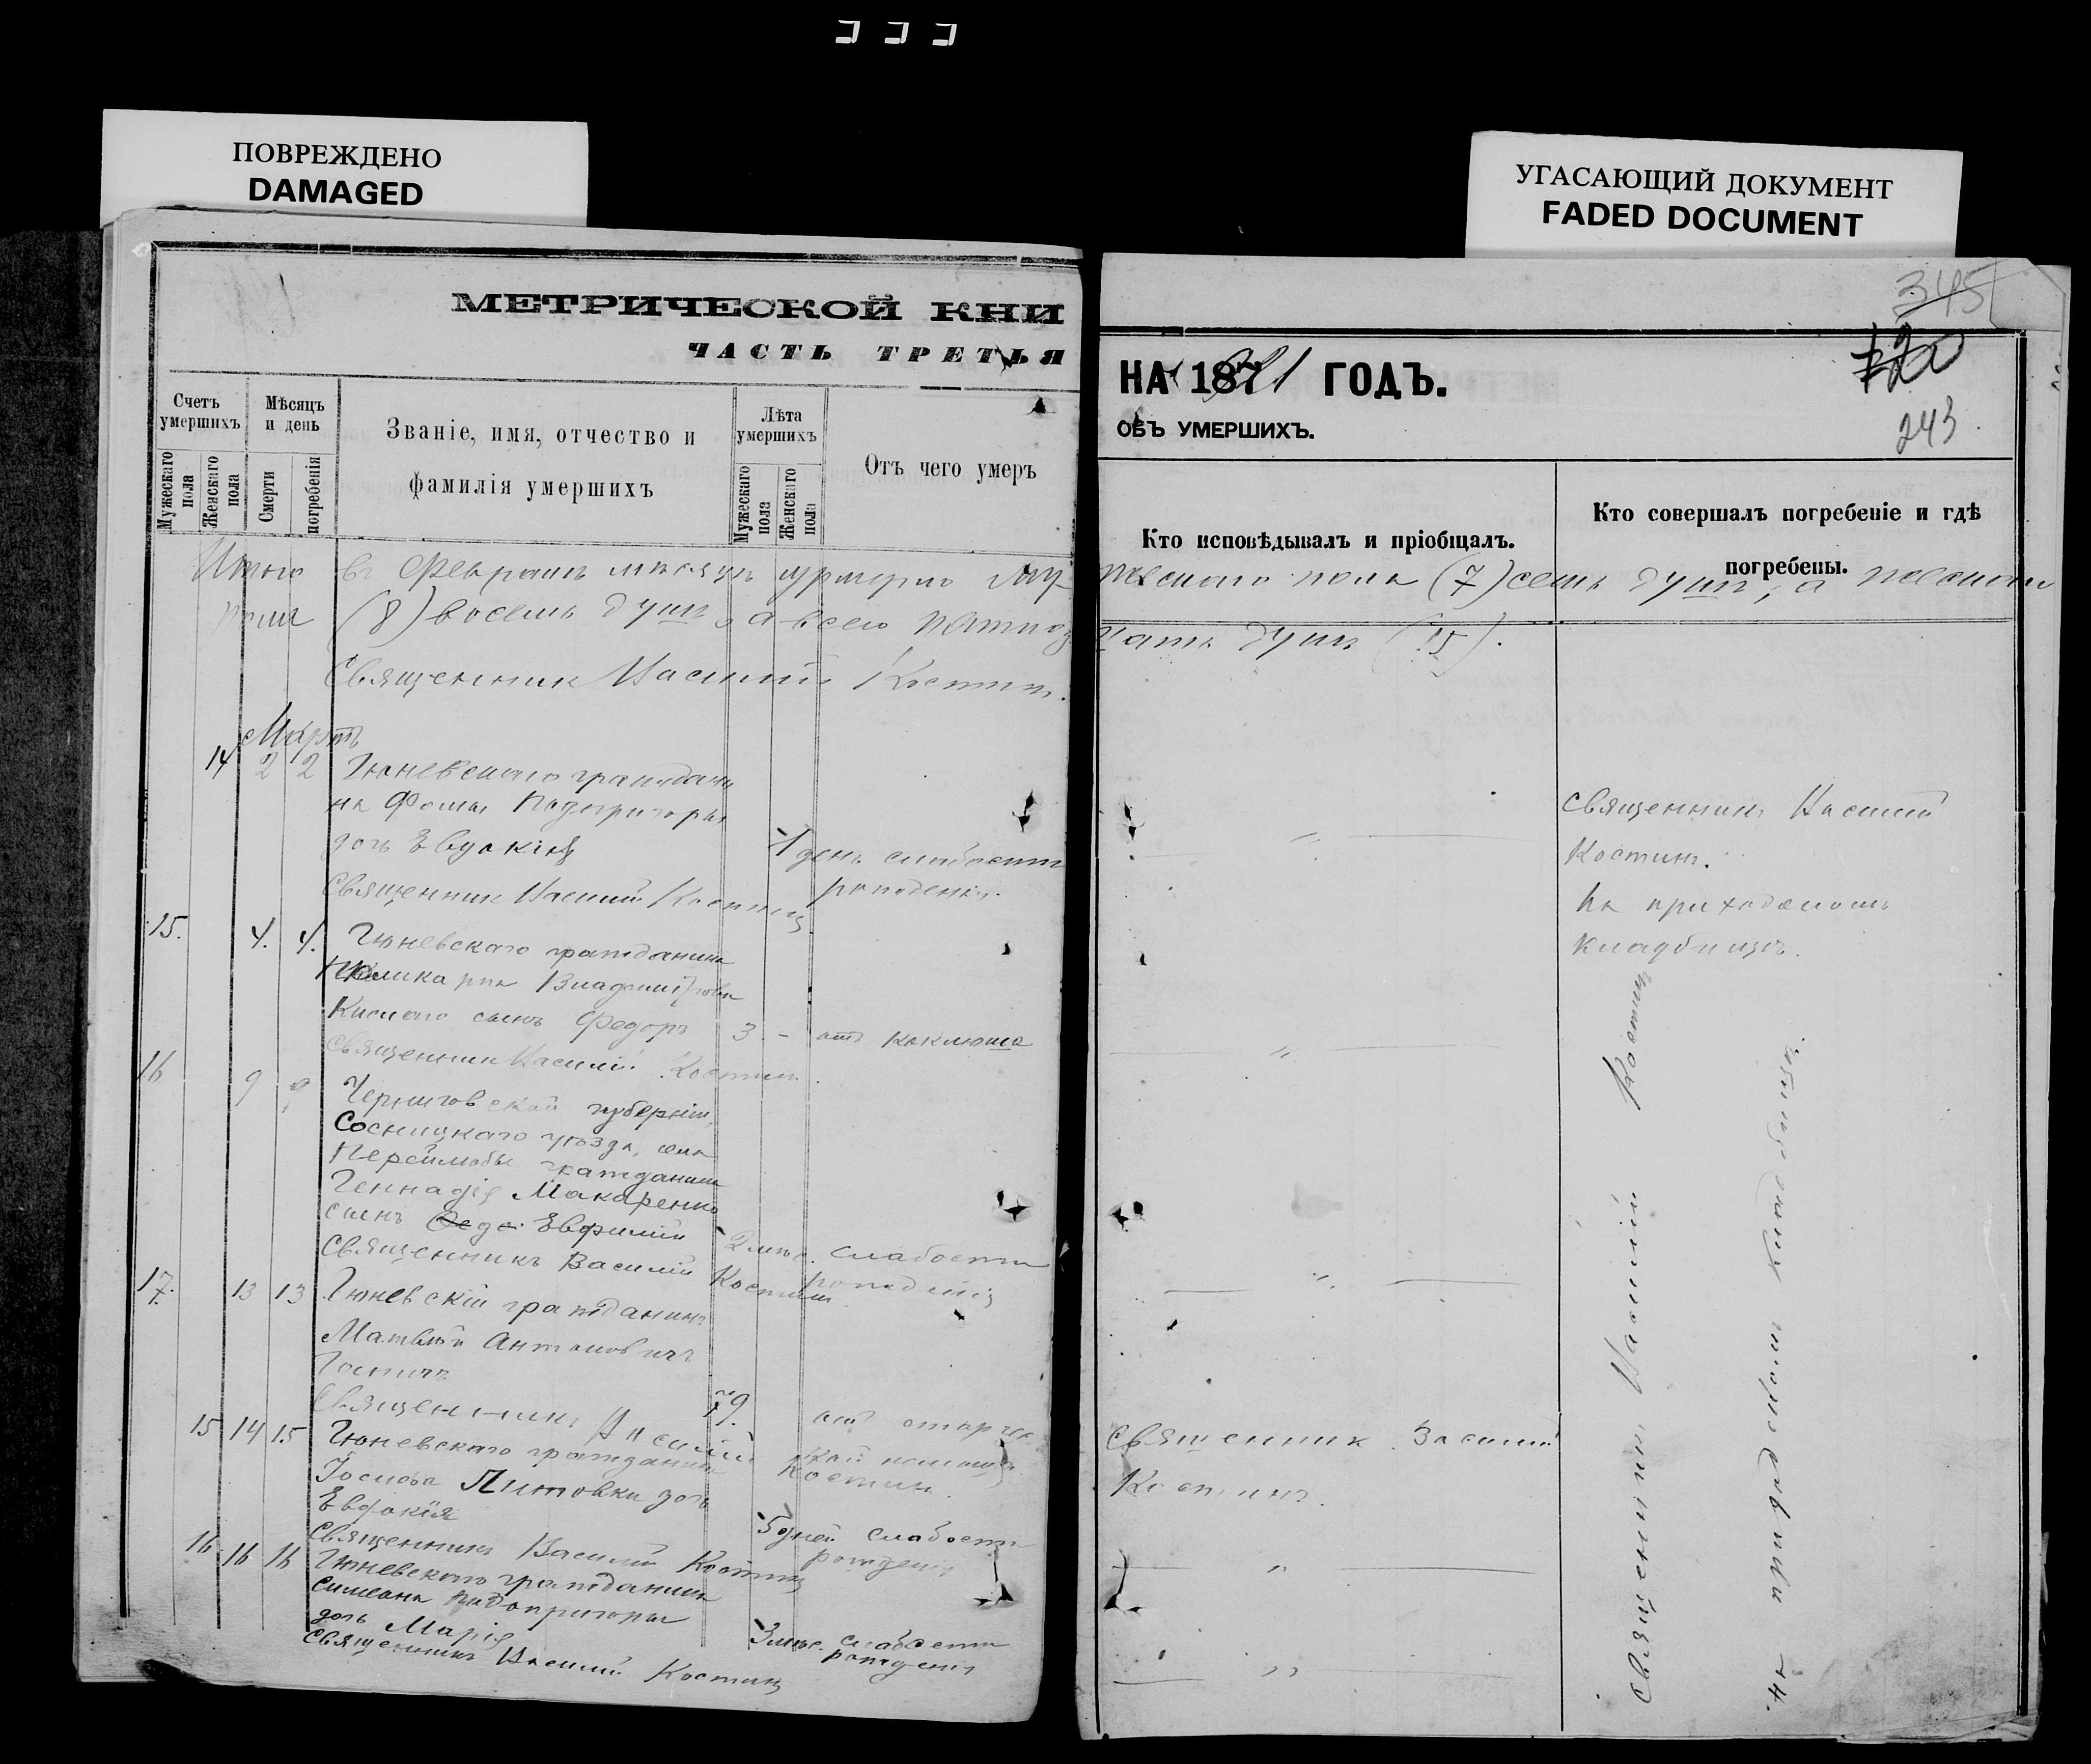 ПОВРЕЖДЕНО
DAMAGED
УГАСАЮЩИЙ ДОКУМЕНТ
FADED DOCUMENT
МЕТРИЧЕСКОЙ КНИ
ЧАСТЬ ТРЕТЬЯ
Счетъ умершихъ
Мужескаго пола
Женскаго пола
Мѣсяцъ и день
Смерти
погребенія
Званіе, имя, отчество и
фамилія умершихъ
Лѣта умершихъ
Мужескаго пола
Женскаго пола
Отъ чего умеръ
345
120
243
НА 1921 ГОДЪ.
ОБЪ УМЕРШИХЪ.
Кто исповѣдывалъ и пріобщалъ.
Кто совершалъ погребеніе и гдѣ
погребены.
Итого въ Февралѣ мѣсяцѣ умерло муж
жескаго пола (7) семь душъ, а женскаго
пола (8) восемь душъ, а всего пятнад
цать душъ (15).
Священник Василій Костинъ.
Мартъ
14 2 2 Гюневскаго граждани
на Фомы Подопригоры
дочь Евдокія 1 день слабости
Священник Василій Костинъ рожденія.
священникъ Василій
Костинъ.
На приходскомъ
кладбищѣ.
15. 4. 4. Гюневскаго гражданина
Поликарпа Владиміров
Кислаго сынъ Федоръ 3 - отъ коклюша
Священник Василій Костинъ.
16 9 9 Черниговской губерніи,
Сосницкаго уѣзда, села
гражданина
Геннадія Макаренко
сынъ Евфимій 2 мѣс. слабости
Священникъ Василій Костинъ рожденія
17. 13 13 Гюневскій гражданинъ
Матвѣй Антоновичъ
79. отъ старчес
Священникъ Василій Костинъ. кой немощи
15 14 15 Гюневскаго гражданина
Іосифа Литовки дочь
Евдокія 5 дней слабости
Священникъ Василій Костинъ рожденія
Священник Василій
Костинъ.
16 16 16 Гюневскаго гражданина
Симеона Подопригоры
дочь Марія 3 мѣс. слабости
Священникъ Василій Костинъ рожденія
Священникъ Василій Костинъ
на приходскомъ кладбищѣ.